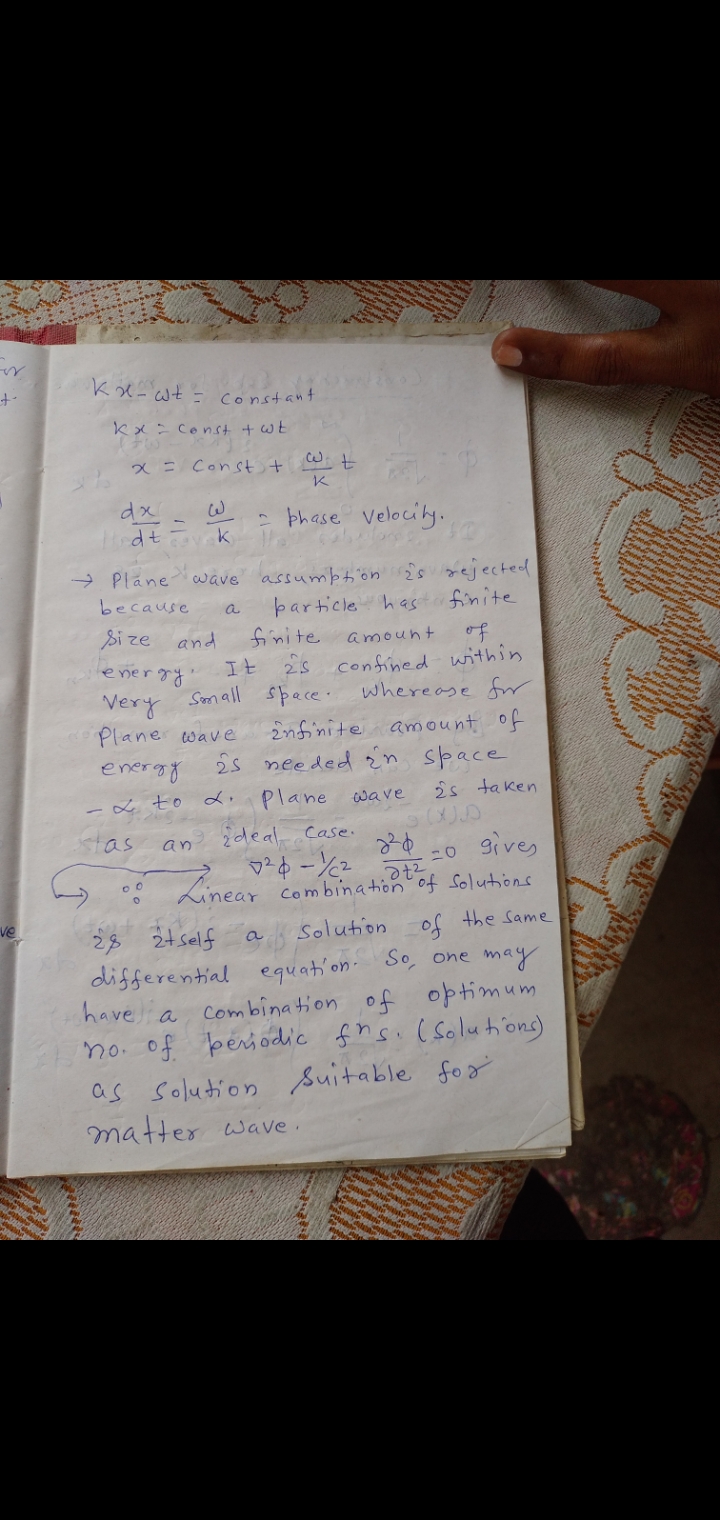 kx - ωt = constant
kx = const + ωt
x = const + ω/k t
dx/dt = ω/k = phase velocity.
→ Plane wave assumption is rejected
because a particle has finite
size and finite amount of
energy. It is confined within
very small space. Wherease for
Plane wave infinite amount of
energy is needed in space
- α to α. Plane wave is taken
as an ideal case.
∇²φ - 1/c² ∂²φ/∂t² = 0 gives
∴ Linear combination of solutions
is itself a solution of the same
differential equation. So, one may
have a combination of optimum
no. of periodic fns. (Solutions)
as solution suitable for
matter wave.